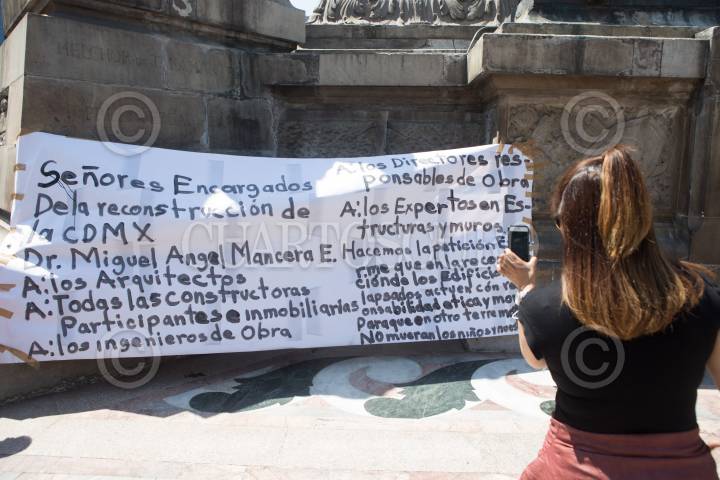 Señores Encargados
De la reconstrucción de
la CDMX
Dr. Miguel Angel Mancera E.
A: los Arquitectos
A: Todas las constructoras
Participantes e inmobiliarias
A: los ingenieros de Obra
A: los Directores res-
ponsables de Obra
A: los Expertos en Es-
tructuras y muros.
Hacemos la petición
rme que en la
ción de los Edific
lapsados actuen con
onsabilidad etica y mo
Para que en otro
No mueran los niños y
CUARTOSCURO
© © © ©